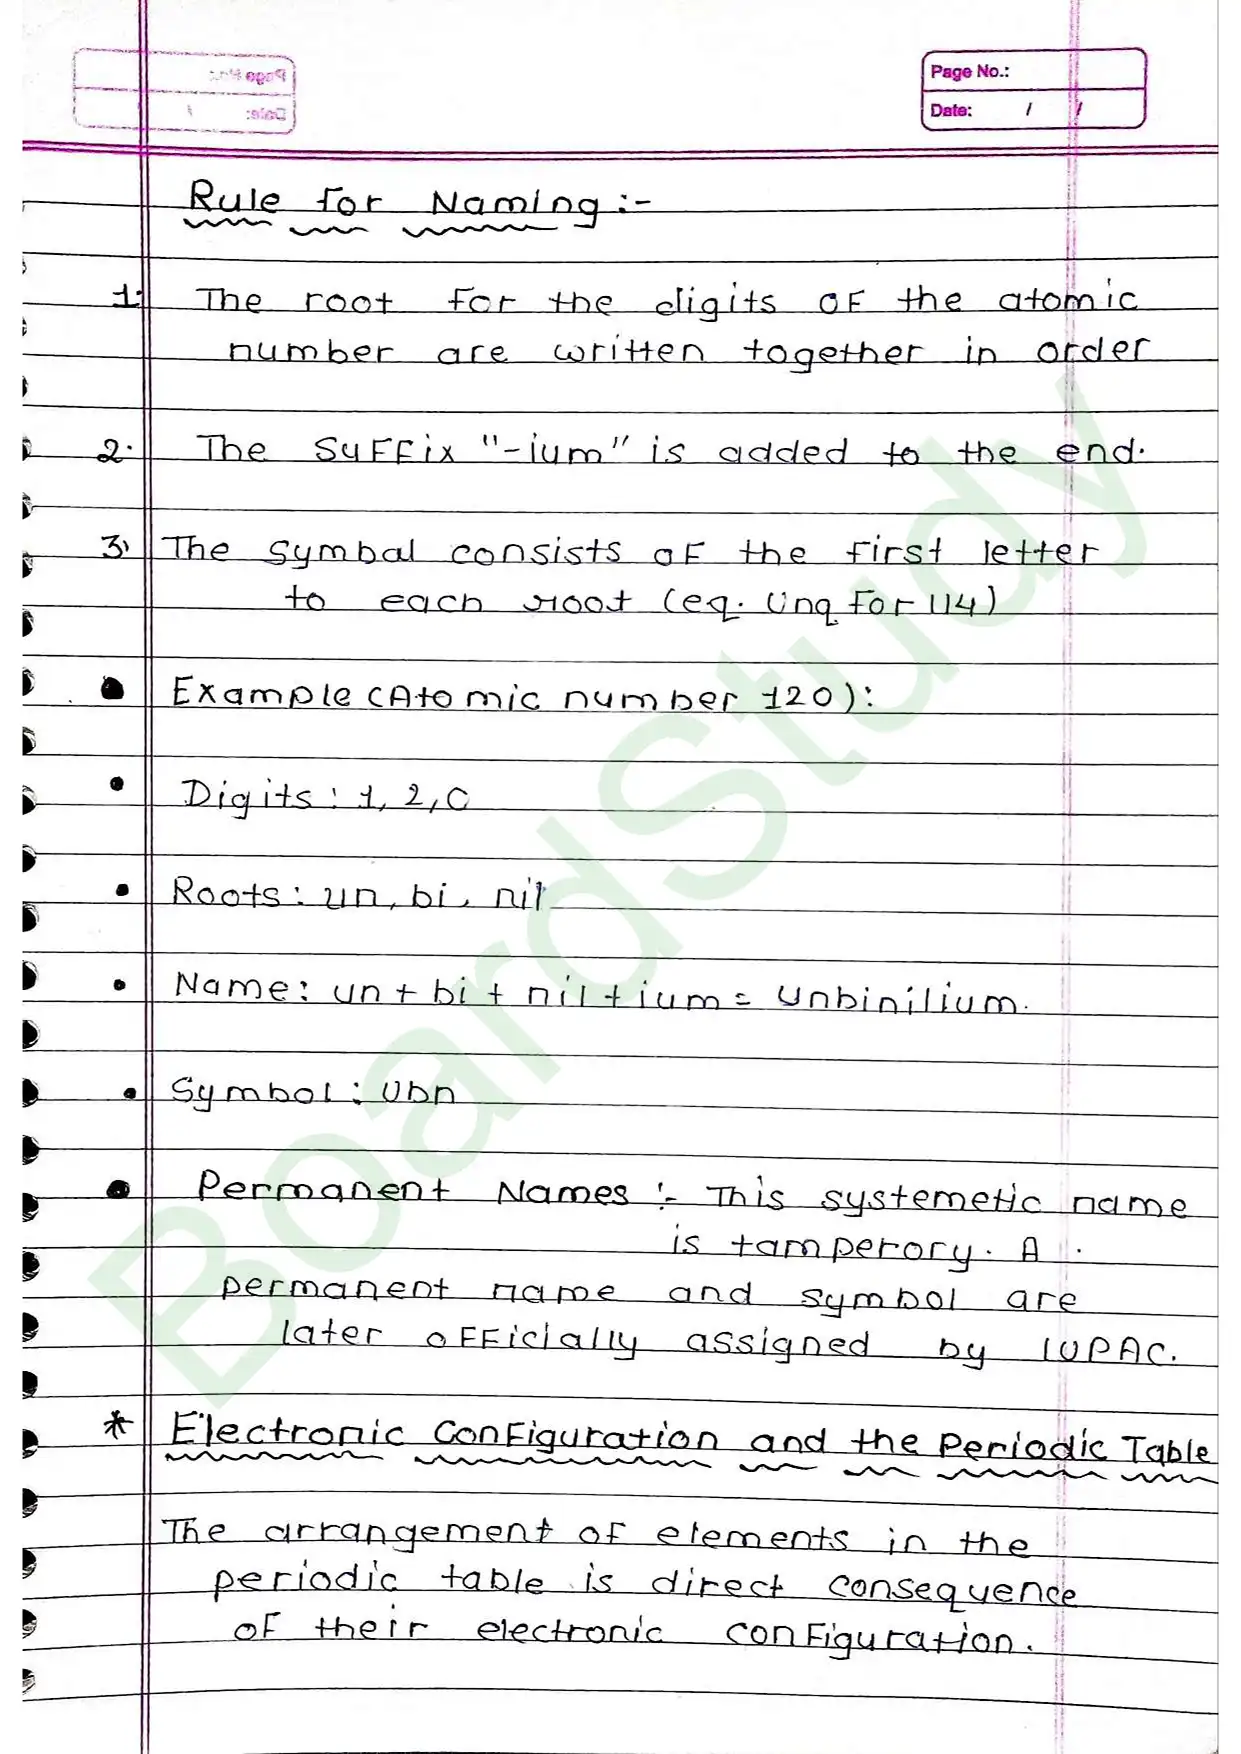 Page No.:
Date: / /
Rule for Naming :-
1. The root for the digits of the atomic
number are written together in order
2. The suffix "-ium" is added to the end.
3. The symbal consists of the first letter
to each root (eq. Unq for 114)
• Example (Atomic number 120):
• Digits : 1, 2, 0
• Roots : un, bi, nil
• Name: un + bi + nil + ium = Unbinilium.
• Symbol : Ubn
• Permanent Names :- This systemetic name
is tamperory. A
permanent name and symbol are
later officially assigned by IUPAC.
* Electronic Configuration and the Periodic Table
The arrangement of elements in the
periodic table is direct consequence
of their electronic configuration.
BoardStudy